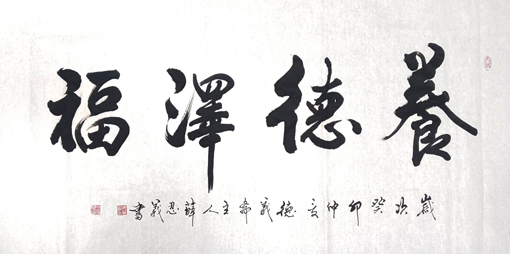 養德澤福
歲次癸卯仲夏德義齋主人薛忍義書